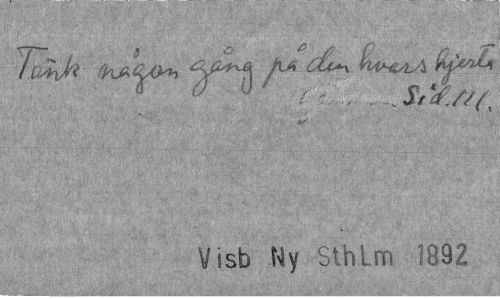 Tänk någon gång på den hvars hjerta
Sid. 111.
Visb Ny SthLm 1892